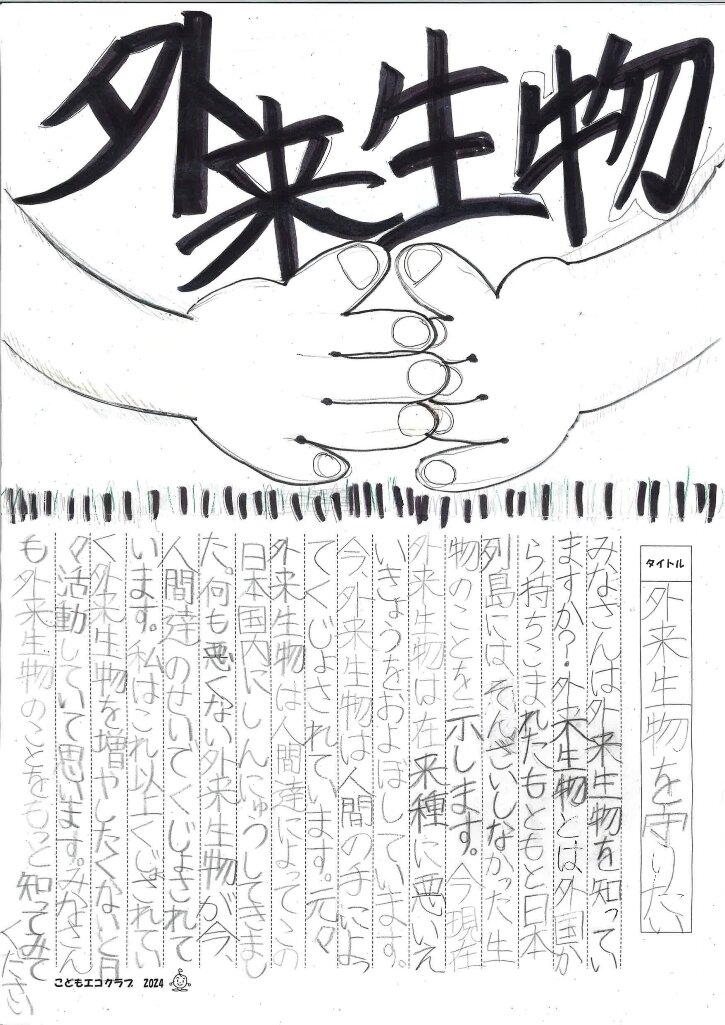 外来生物
タイトル
外来生物を守りたい
みなさんは外来生物を知ってい
ますか?・外来生物とは外国か
ら持ちこまれたもともと日本
列島にはそんざいしなかった生
物のことを示します。今現在
外来生物は在来種に悪いえ
いきょうをおよぼしています。
今、外来生物は人間の手によっ
てくじょされています。元々
外来生物は人間達によってこの
日本国内にしんにゅうしてきまし
た。何も悪くない外来生物が今、
人間達のせいでくじょされて
います。私はこれ以上くじょされてい
く外来生物を増やしたくないと日
々活動していて思います。みなさん
も外来生物のことをもっと知ってみて
ください
こどもエコクラブ 2024